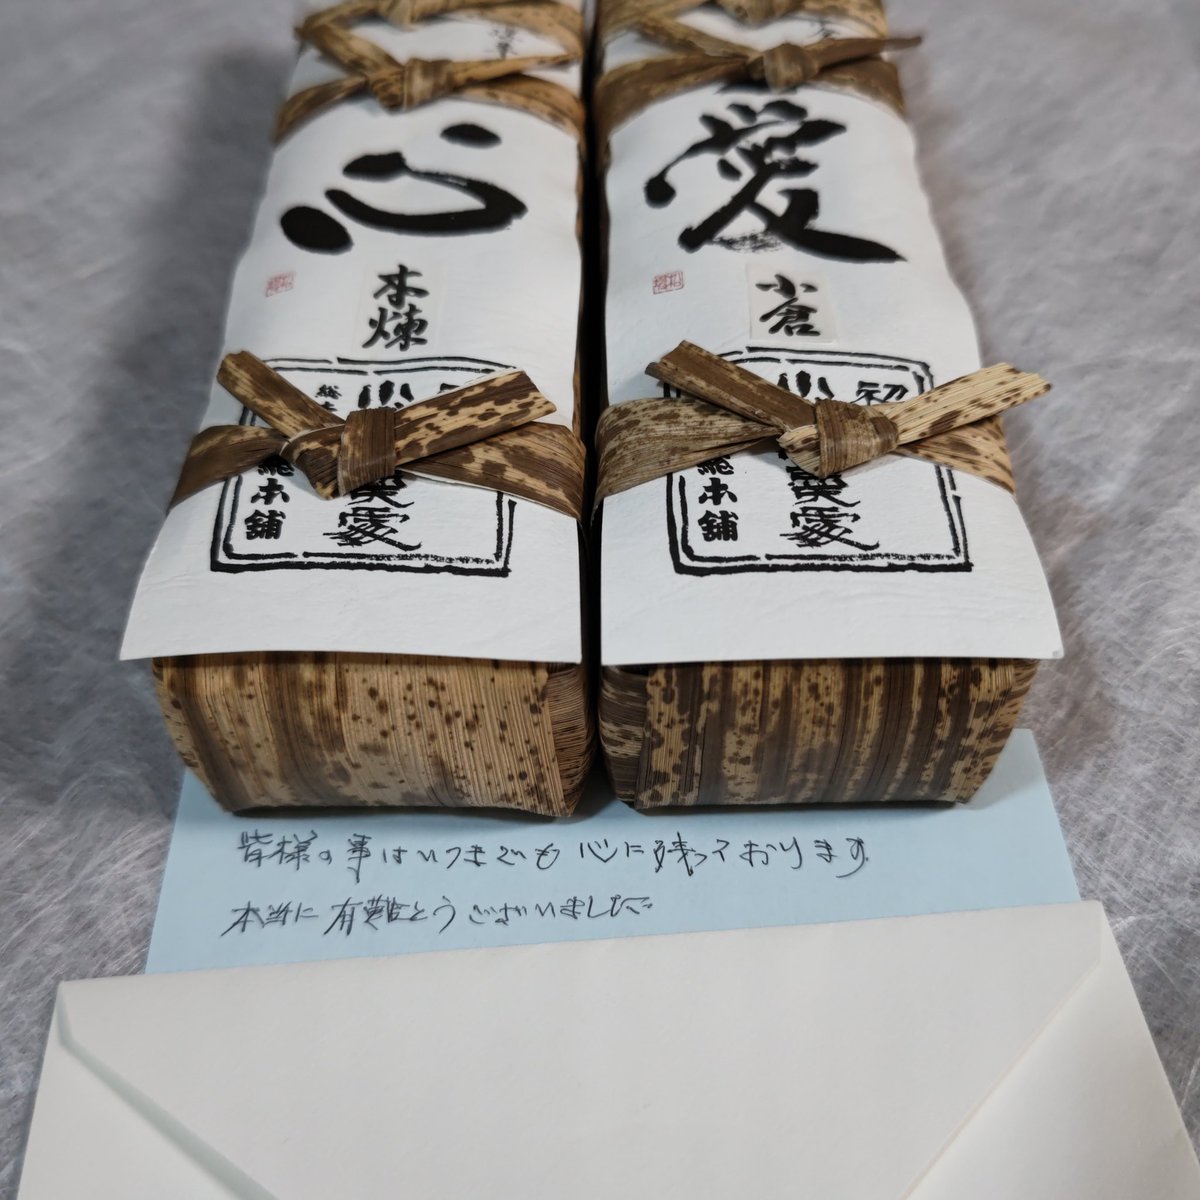 心
本煉
総本舗
愛
小倉
初
総本舗
皆様の事はいつまでも心に残っております
本当に有難とうございました